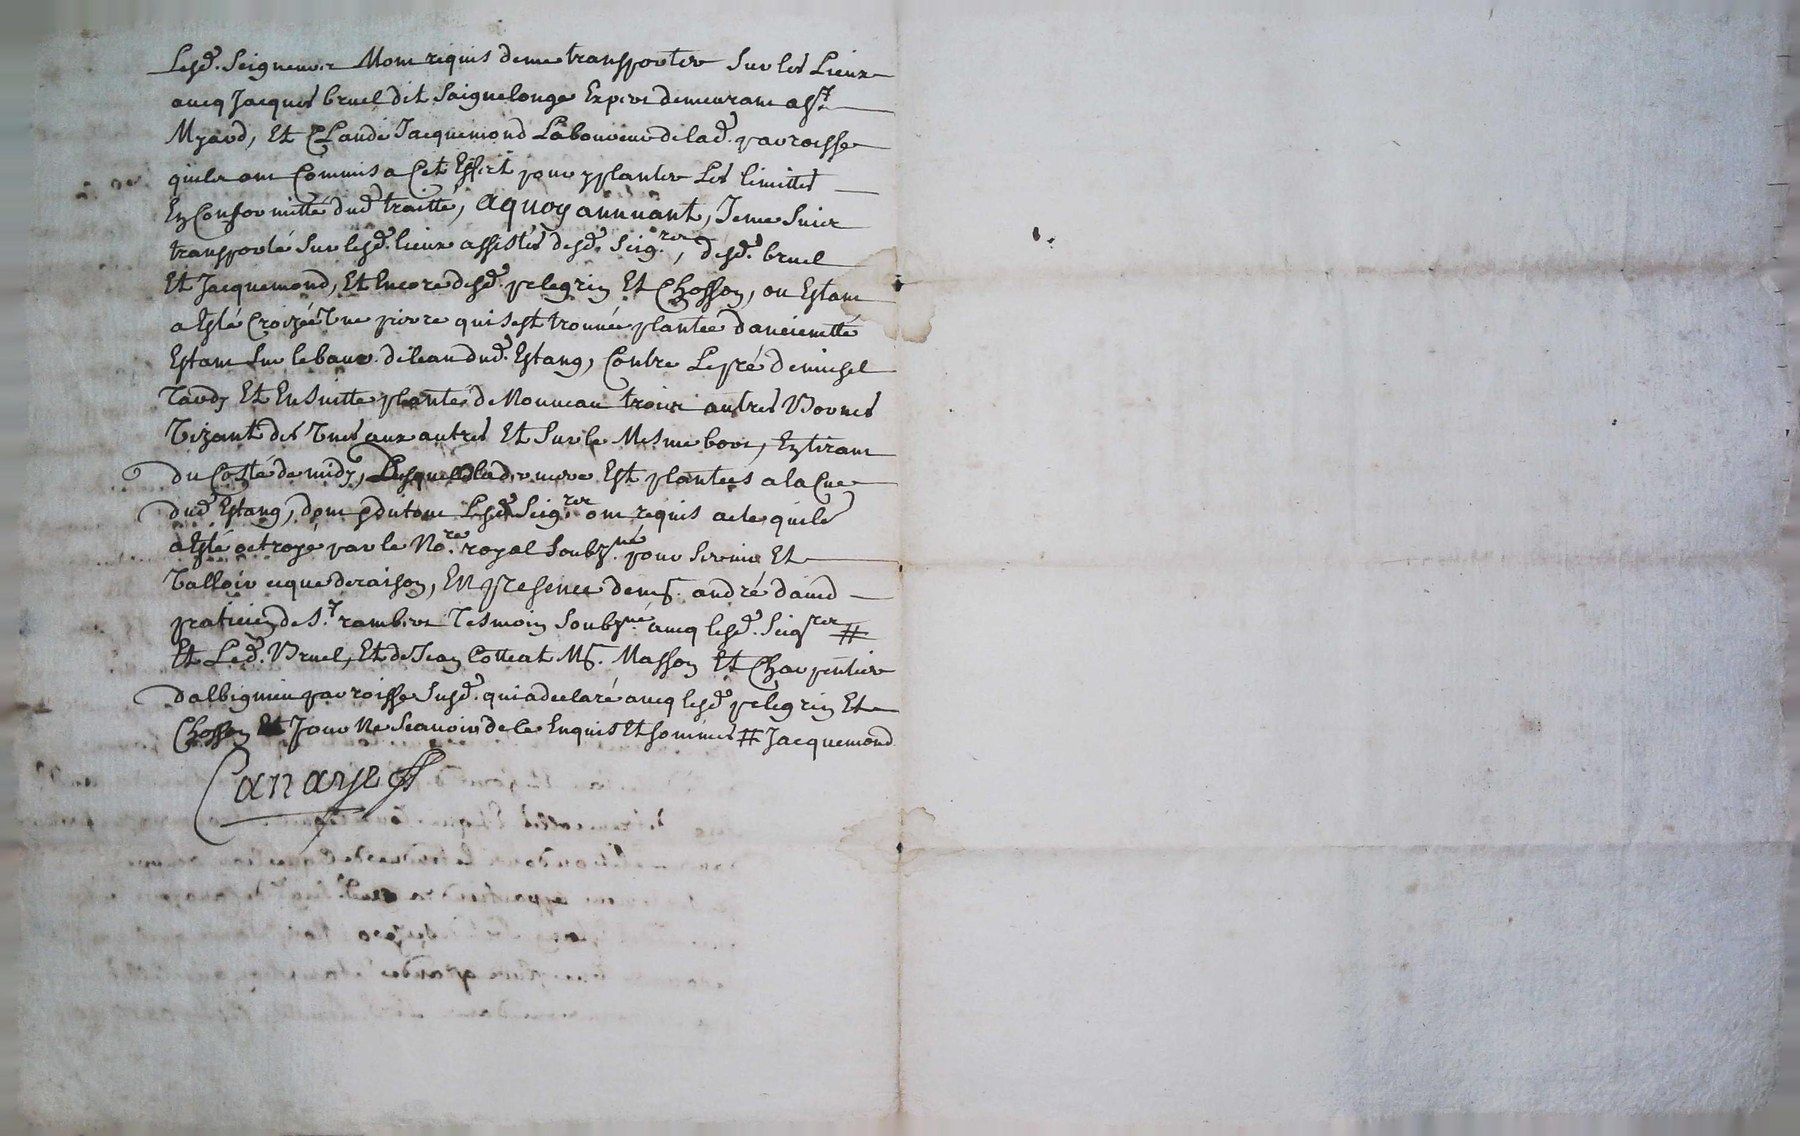 Lesd. Seigneurs Mont requis de me transporter Sur les Lieux
avecq Jacques bruel dit Saignelonge Expert demeurant a St
Myard, Et Claude Jacquemond Laboureur de lad. parroisse
quils ont Commis a Cet Effect pour y planter Les limittes
En Conformitté dud traitté, A quoy annuant, Je me Suis
transporté Sur lesd. lieux assistés desd. Seigrs, desd. bruel
Et Jacquemond, Et Encore desd. pelegrin Et Chosson, ou Estant
a Esté Croizée Une pierre qui Sest trouvée plantée dancienetté
Estant Sur le baux de leau dud. Estang, Contre Le pré de michel
Tardy Et En Suitte plantés de Nouveau trois autres Bornes
Vizant des Unes aux autres Et Sur le Mesme bore, En tirant
du Costé de midy, est plantées a la Cue
dud Estang, dont Et du tout Lesd Seigrs ont requis acte quils
a Esté octroyé par le Nore royal Soubzné pour Servir Et
Valloir ce que de raison, En presence de mr. andré david
praticien de St. rambert Tesmoin Soubzné avecq lesd. Seigrs #
Et Led. Bruel, Et de Jean Cotteat Mr. Masson Et Charpentier
dalbignieu parroisse Susd. qui a declaré avecq lesd pelegrin Et
Chosson Et pour Ne Scavoir de ce Enquis Et sommés # Jacquemond
Canaye